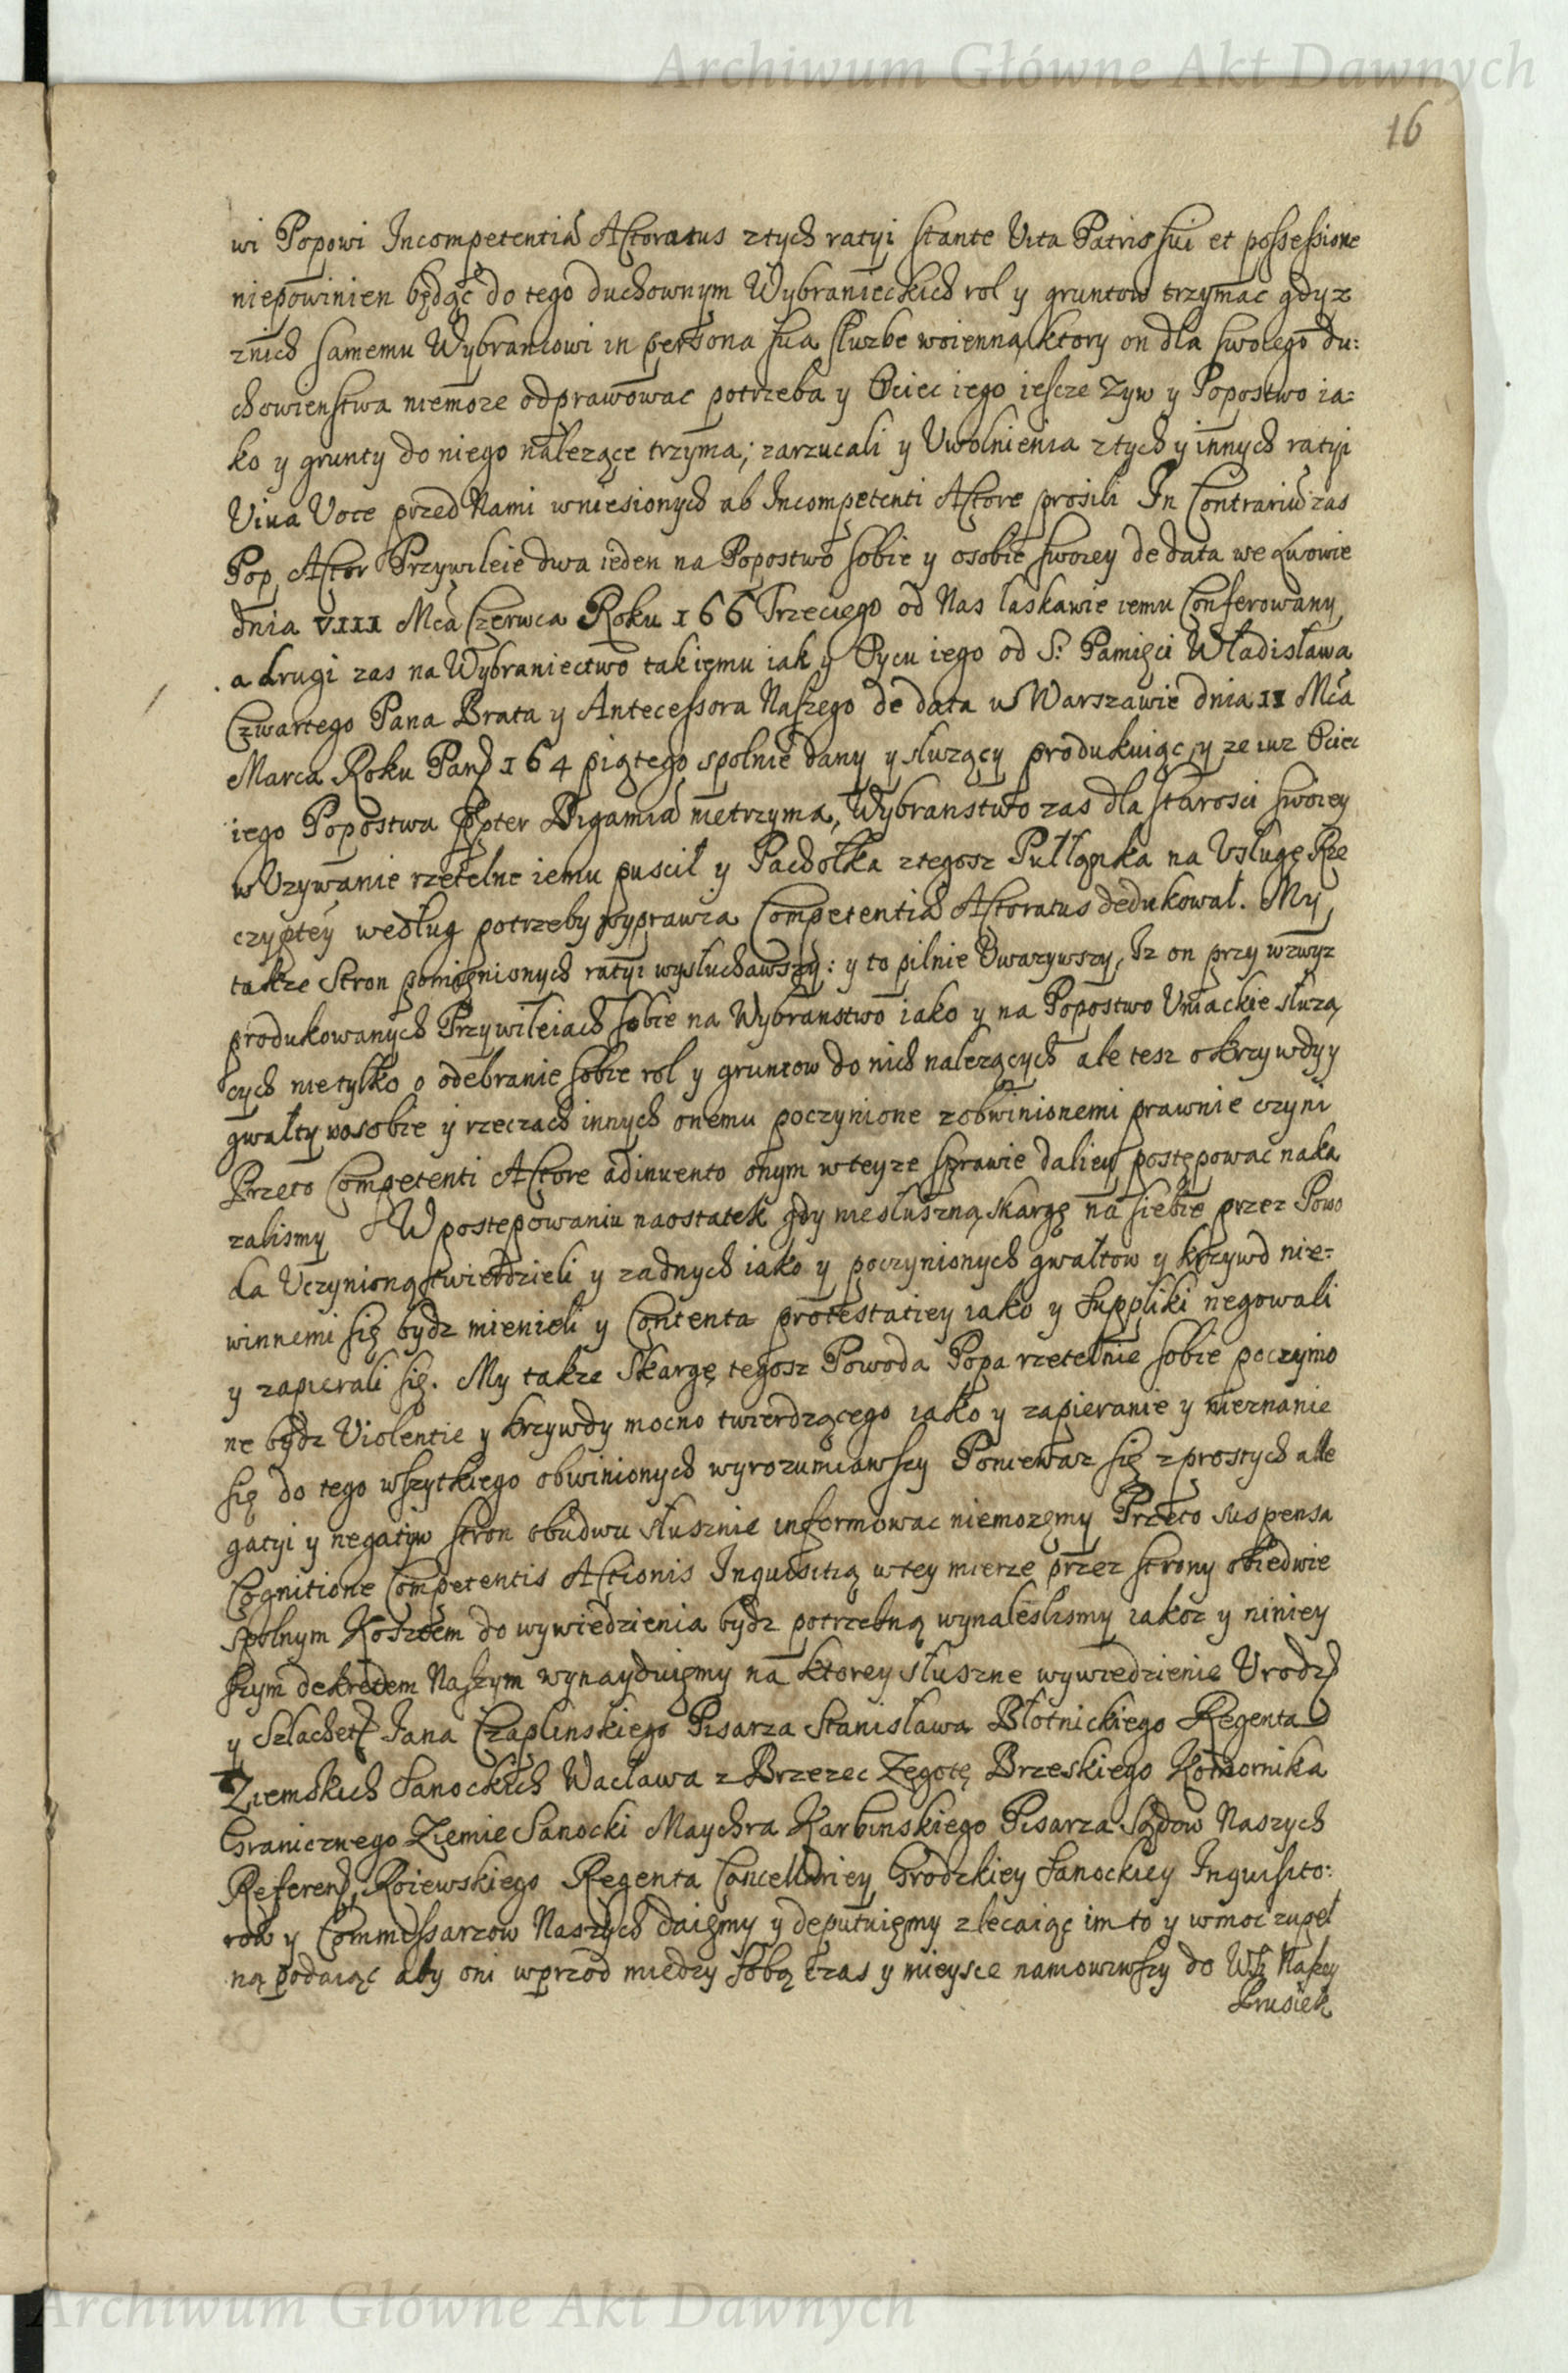 Archiwum Główne Akt Dawnych
16
wi Popowi Incompetentiā Actoratus z tych ratyi stante Vita Patris sui et possessione
niepowinien będąc do tego duchownym Wybranieckich rol y gruntow trzymac gdyz
znich samemu Wybrancowi in persona sua służbe woienną ktory on dla swoiego du:
chowienstwa niemoze odprawowac potrzeba y Ociec iego iescze zyw y Popostwo ia:
ko y grunty do niego nalezące trzyma; zarzucali y Uwolnienia z tych y innych ratyi
Viva Voce przed Nami wniesionych ab Incompetenti Actore prosili In Contrariū zas
Pop, Actor Przywileie dwa ieden na Popostwo sobie y osobie swoiey de data we Lwowie
dnia VIII Mca Czerwca Roku 166 Trzeciego od Nas łaskawie iemu Conferowany,
a drugi zas na Wybraniectwo tak iemu iak y Oycu iego od S: Pamięci Władisława
Czwartego Pana Brata y Antecessora Naszego de data w Warszawie dnia 11 Mca
Marca Roku Pan 164 piątego spolnie dany y słuzący produkuiąc, y ze iuz Ociec
iego Popostwa ppter Bigamiā nietrzyma, Wybranstwo zas dla starosci swoiey
w Uzywanie rzetelne iemu puscił y Pachołka z tegosz Pułłanka na Usługę Rze
czyptey według potrzeby wyprawia Competentiā Actoratus dedukował. My,
takze Stron pomięnionych ratyi wysłuchawszy: y to pilnie Uwazywszy, Iz on przy wzwyz
produkowanych Przywileiach sobie na Wybranstwo iako y na Popostwo Uniackie słuzą
cych nietylko o odebranie sobie rol y gruntow do nich nalezących ale tesz o krzywdy y
gwałty w osobie y rzeczach innych onemu poczynione z obwinionemi prawnie czyni
Przeto Competenti Actore adinuento onym w teyze sprawie daliey postępowac naka
zalismy W postepowaniu naostatek gdy niesłuszną skargę na siebie przez Powo
da Uczynioną twierdzieli y zadnych iako y poczynionych gwałtow y krzywd nie:
winnemi się bydz mienieli y Contenta protestatiey iako y Suppliki negowali
y zapierali się. My takze Skargę tegosz Powoda Popa rzetelnie sobie poczynio
ne bydz Violentie y krzywdy mocno twierdzącego iako y zapieranie y nieznanie
się do tego wszytkiego obwinionych wyrozumiawszy Poniewaz się z prostych alle
gatyi y negatyw stron obudwu słusznie informowac niemozęmy Przeto suspensa
Cognitione Competentis Actionis Inquisitią w tey mierze przez strony obiedwie
spolnym Kosztem do wywiedzienia bydz potrzebną wynalesliśmy iakoz y niniey
szym dekretem Naszym wynayduięmy na ktorey słuszne wywiedzienie Urodz
y Szlachet Jana Czaplinskiego Pisarza Stanisława Błotnickiego Regenta
Ziemskich Sanockich Wacława z Brzezec Zegotę Brzeskiego Komornika
Granicznego Ziemie Sanocki Maychra Karbinskiego Pisarza Sądow Naszych
Referen, Roiewskiego Regenta Cancellariey Grodzkiey Sanockiey Inquisito:
row y Commissarzow Naszych daięmy y deputuięmy zlecaiąc im to y w moc zupeł
ną podaiąc aby oni wprzod między sobą czas y mieysce namowiwszy do Wsi Naszey
Archiwum Główne Akt Dawnych